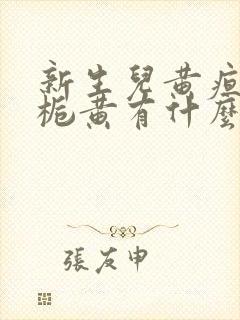 新生兒黃疸
梔黃有什麼
張友申